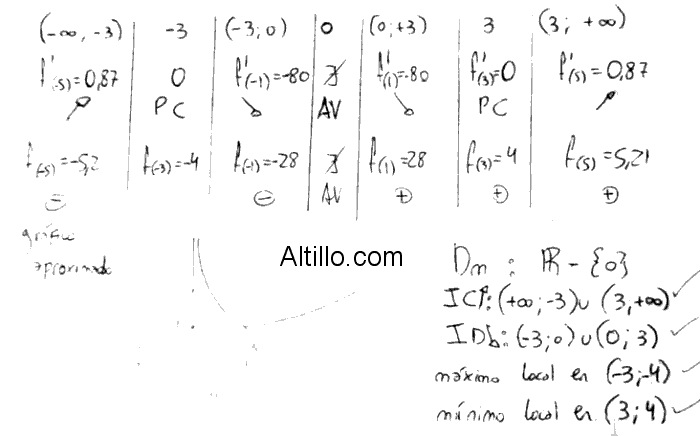 (-∞, -3) -3 (-3; 0) 0 (0; +3) 3 (3; +∞)
f'(-5)=0,87 0 f'(-1)=-80 ∄ f'(1)=-80 f'(3)=0 f'(5)=0,87
↗ PC ↘ AV ↘ PC ↗
f(-5)=-5,2 f(-3)=-4 f(-1)=-28 ∄ f(1)=28 f(3)=4 f(5)=5,21
⊖ ⊖ AV ⊕ ⊕ ⊕
gráfico
aproximado
Altillo.com
Dm : ℝ - {0}
ICr: (+∞; -3) ∪ (3, +∞) ✓
IDb: (-3; 0) ∪ (0; 3) ✓
máximo local en (-3; -4) ✓
mínimo local en (3; 4) ✓